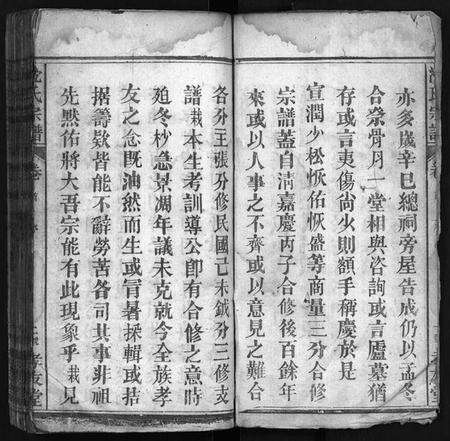 亦多歲辛巳總祠旁屋告成仍以孟冬
合宗骨月一堂相與咨詢或言廬墓猶
存或言夷傷尙少則額手稱慶於是
宣潤少松恢佑恢盛等商量三分合修
宗譜蓋自清嘉慶丙子合修後百餘年
來或以人事之不齊或以意見之難合
各分王張分修民國己未鉞分三修支
譜栽本生考訓導公卽有合修之意時
廹冬杪急景凋年議未克就今全族孝
友之念既油然而生或冐暑採輯或拮
据壽欵皆能不辭勞苦各司其事非祖
先默佑將大吾宗能有此現象乎栽見
沈氏宗譜
卷
孝友堂